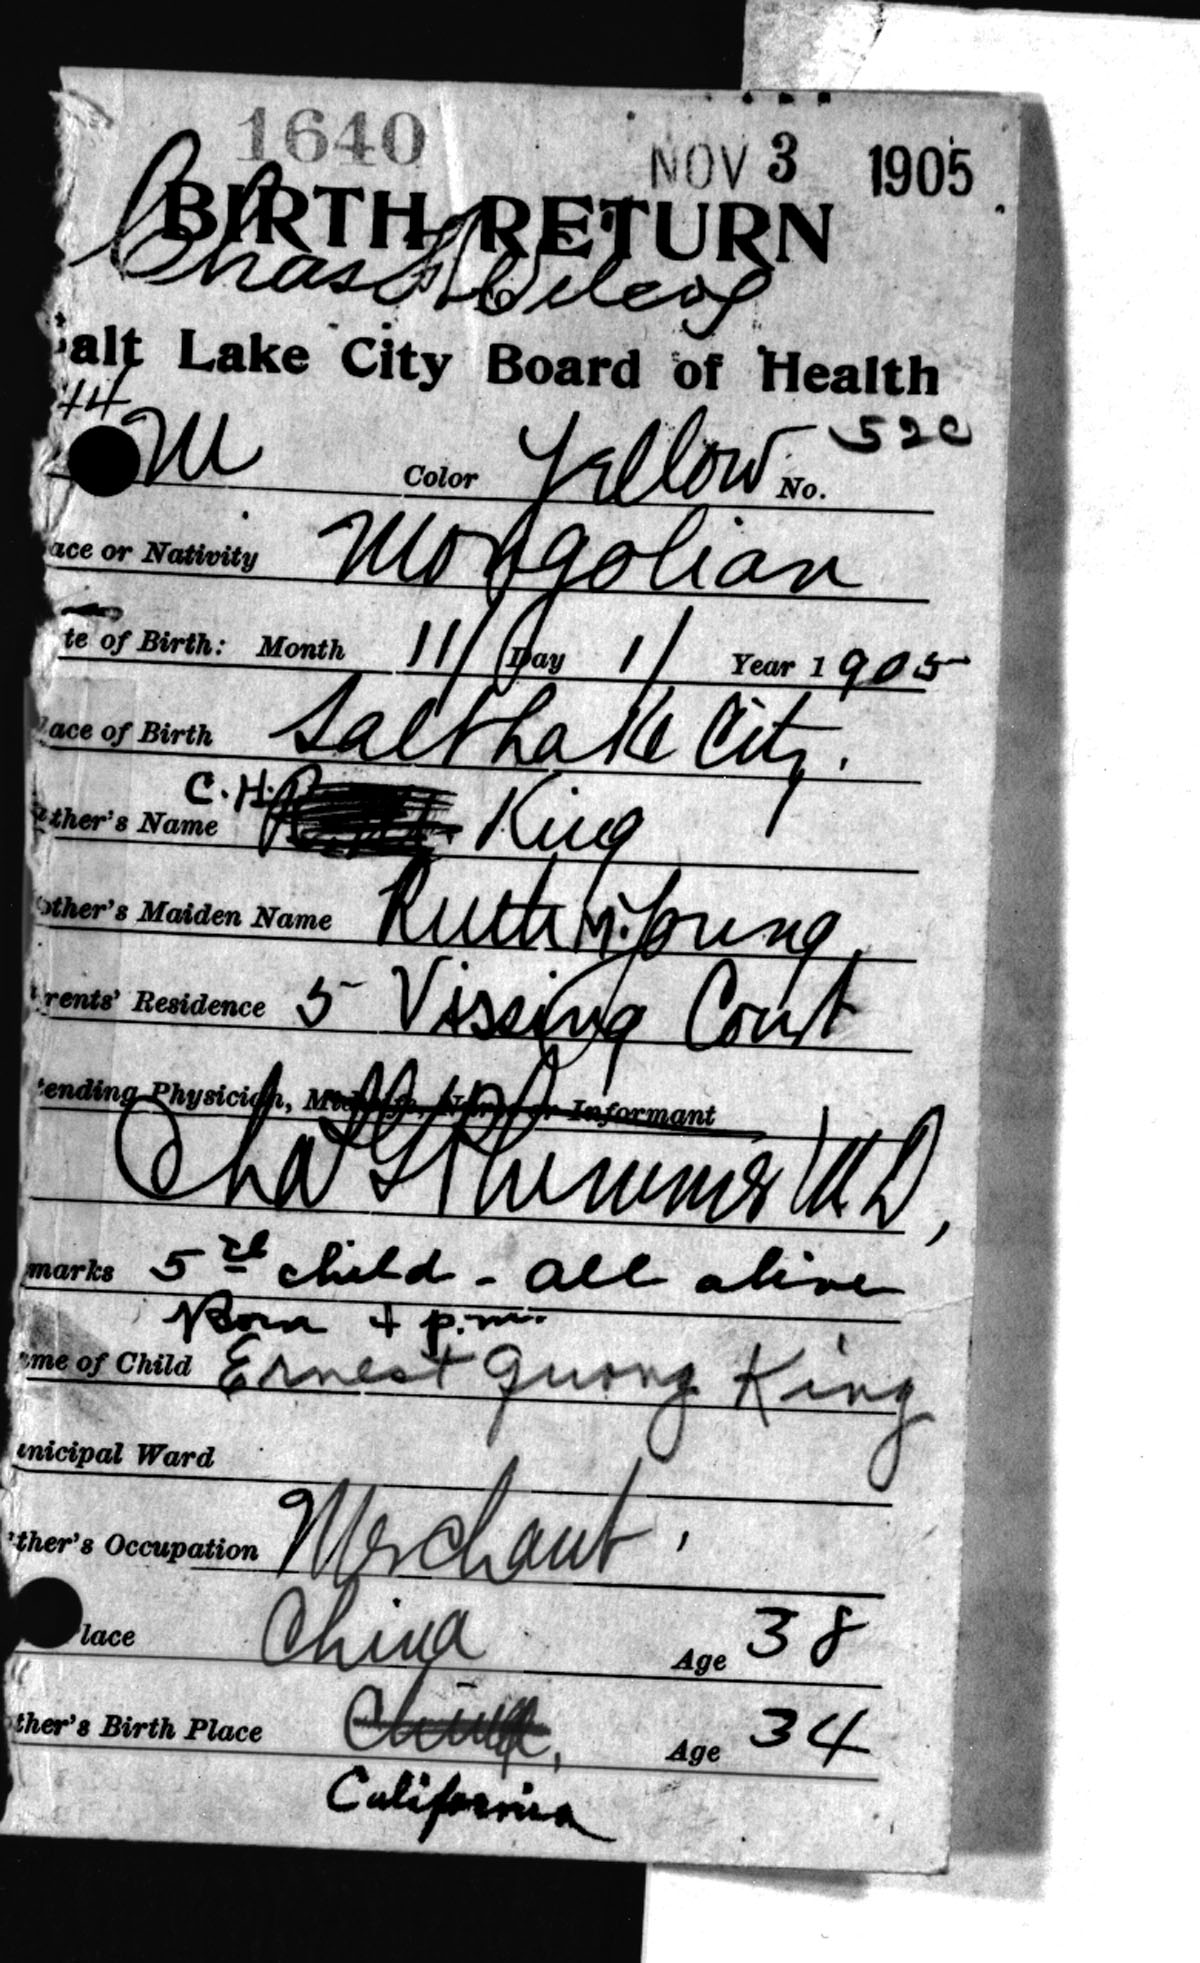 1640 NOV 3 1905
BIRTH RETURN
Chas
alt Lake City Board of Health
M Color Yellow No. 520
ace or Nativity Mongolian
te of Birth: Month 11/ Day 1/ Year 1905
ace of Birth Salt Lake City.
ther's Name C.H. King
other's Maiden Name Ruth M. Young
rents' Residence 5 Vissing Court
tending Physician, Midwife, Nurse or Informant
Chas G Plummer M D,
marks 5th child - all alive
Born 4 p.m.
me of Child Ernest Quong King
unicipal Ward
ther's Occupation Merchant
lace China Age 38
ther's Birth Place China, Age 34
California